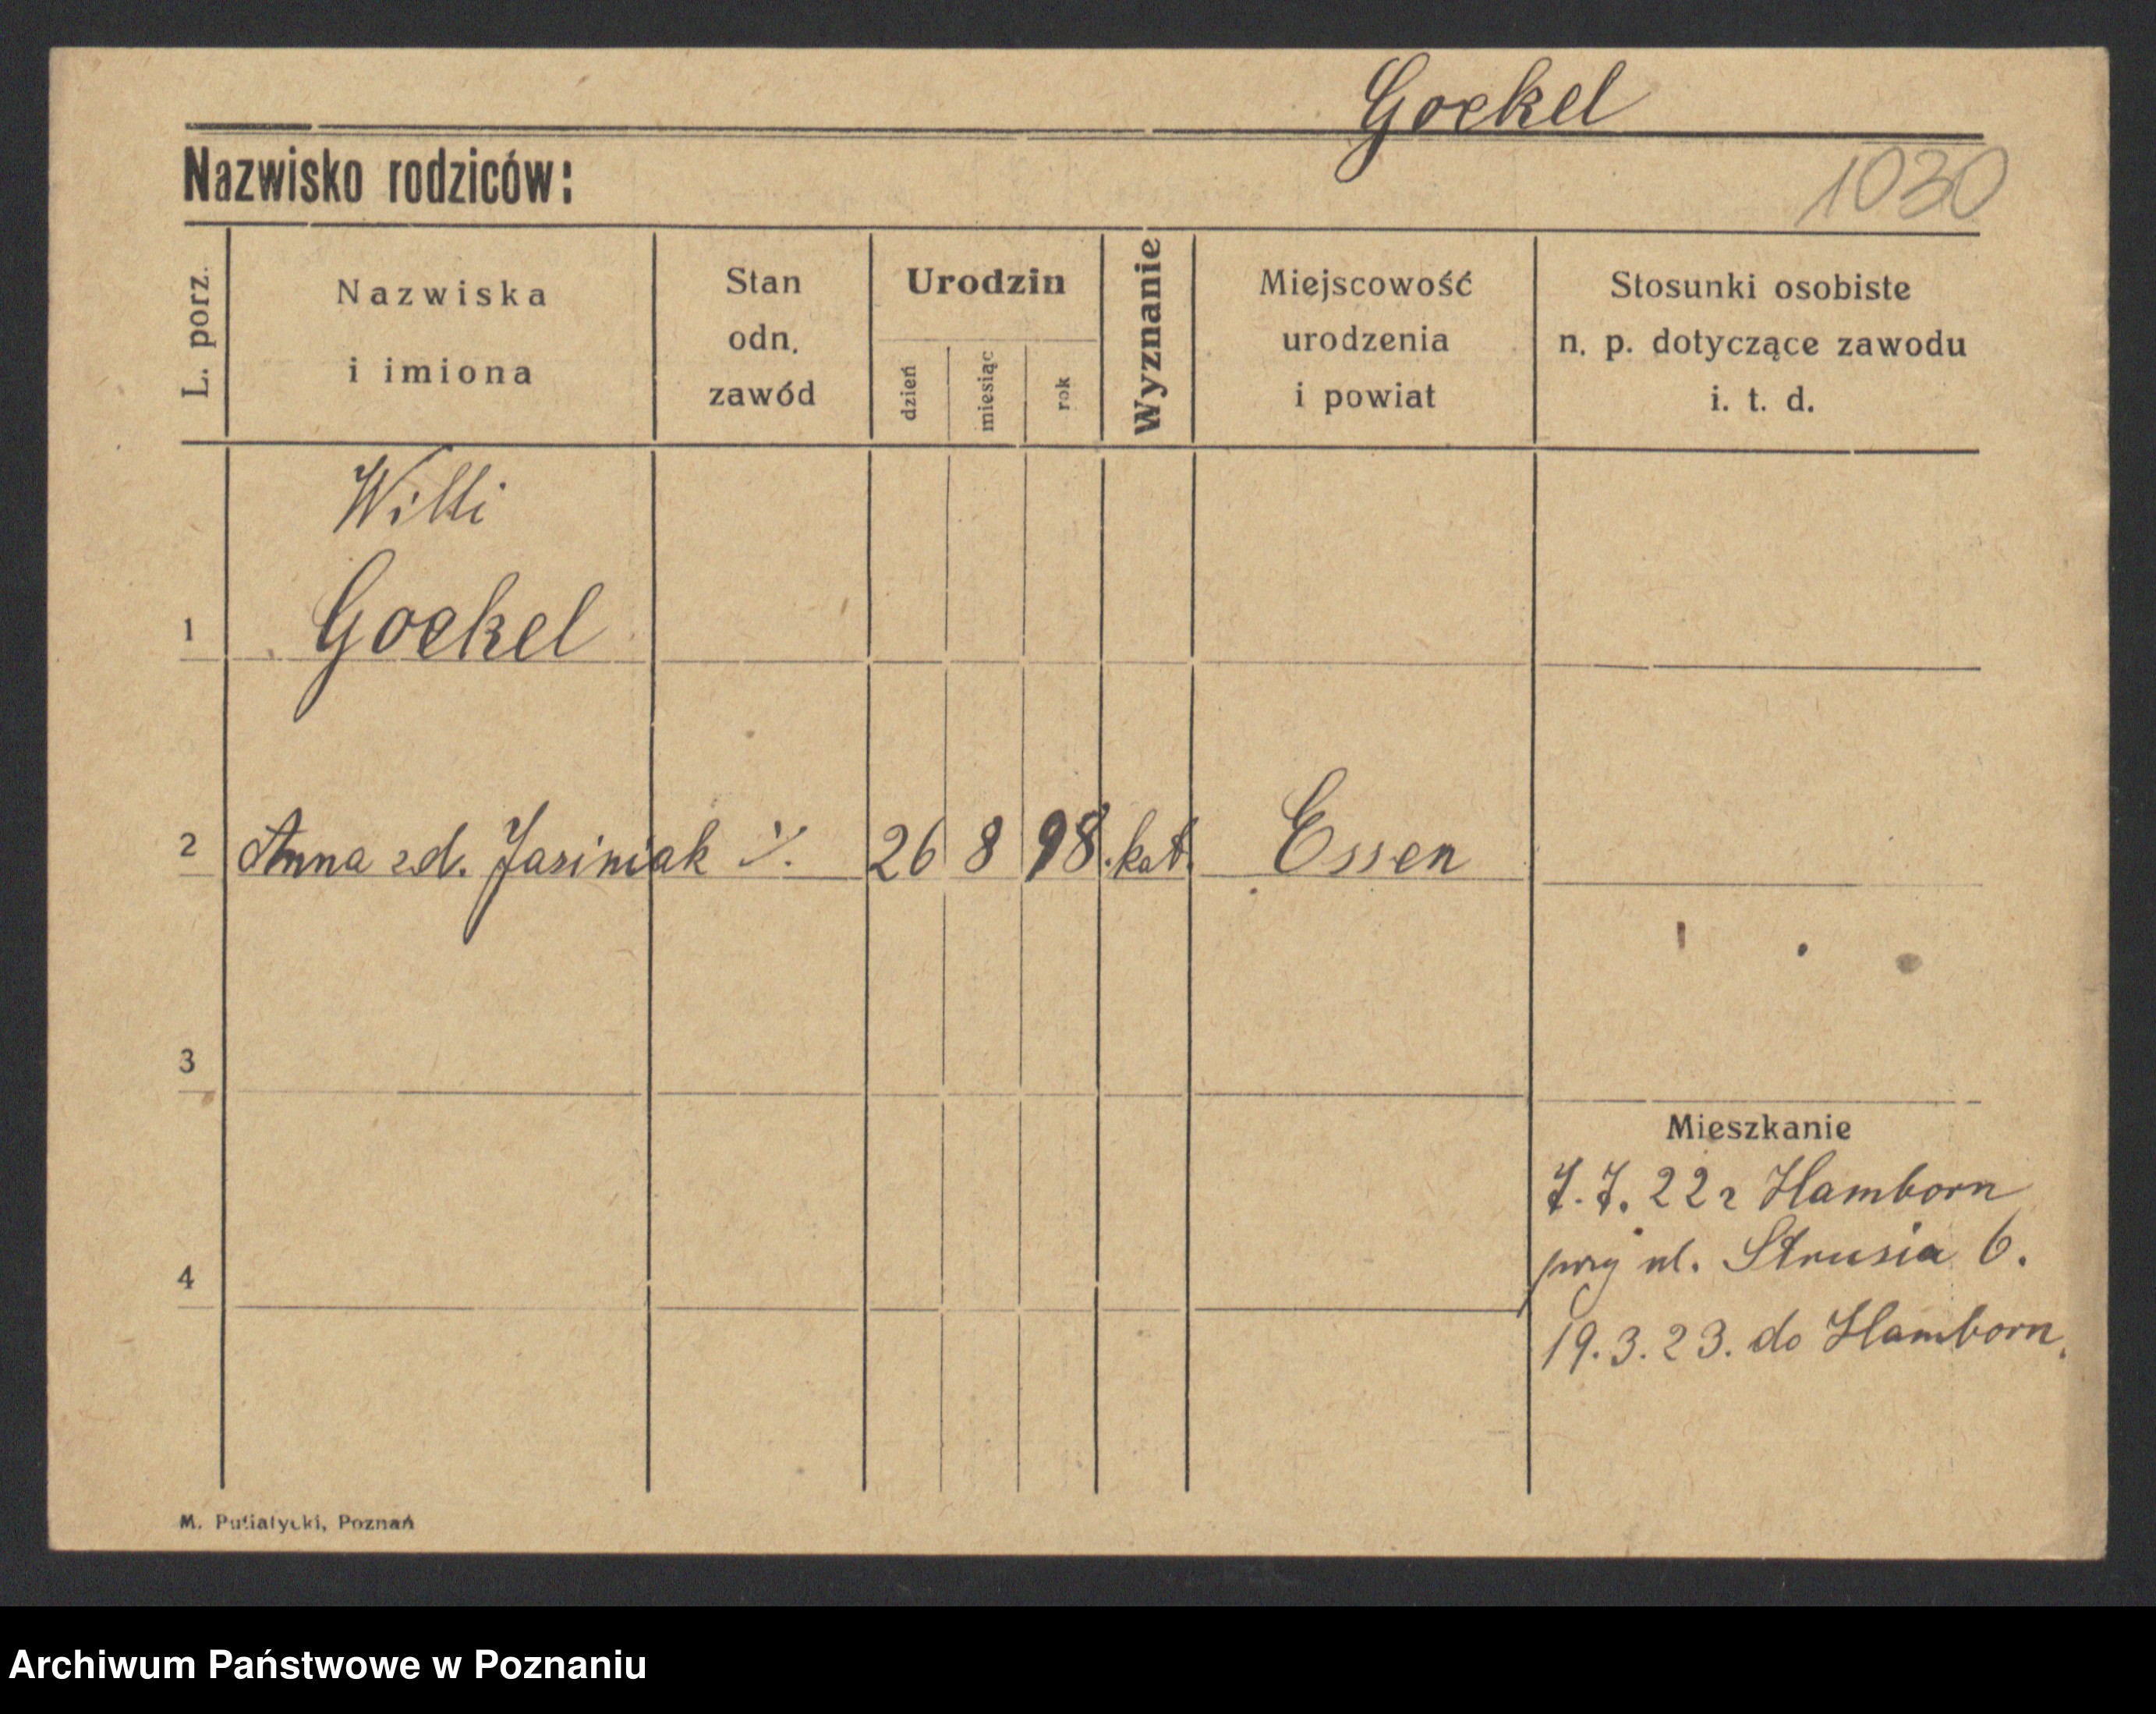 Goekel
Nazwisko rodziców:
1030
L. porz.
Nazwiska
i imiona
Stan
odn.
zawód
Urodzin
dzień
miesiąc
rok
Wyznanie
Miejscowość
urodzenia
i powiat
Stosunki osobiste
n. p. dotyczące zawodu
i. t. d.
Willi
1 Goekel
2 Anna zd. Jasiniak 26 8 98. kat. Essen
3
Mieszkanie
7.7. 22 z Hamborn
przy ul. Strusia 6.
4
19.3.23. do Hamborn.
M. Putiatycki, Poznań
Archiwum Państwowe w Poznaniu